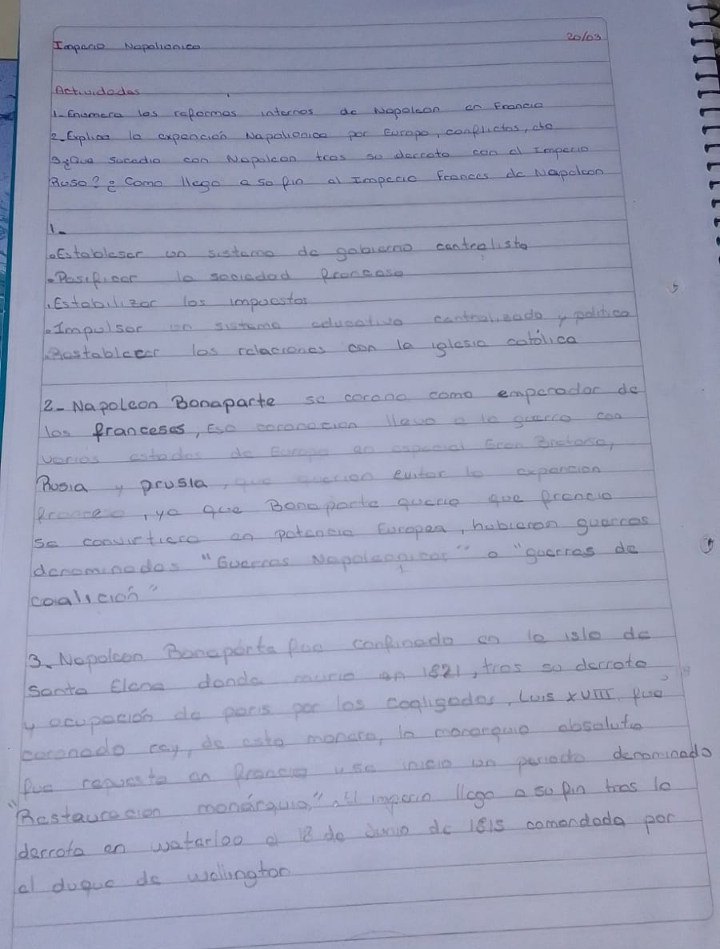 Imperio Napolionico 20/03
Actividades
1- Enumera las reformas internas de Napoleon en Francia
2- Explica la expanción Napolionica por Europa, conflictos, etc
3¿Que sucedio con Napoleon tras su derrota con el Imperio
Ruso? ¿Como llego a su fin el Imperio Frances de Napoleon
1-
•Estableser un sistema de gobierno centralista
•Pasificar la sociedad francesa
•Estabilizar los impuestos
•Impulsar un sistema educativo centralizado y politico
•Restablecer las relaciones con la iglesia católica
2- Napoleon Bonaparte se corano como emperador de
los franceses, Esa coronacion llevo a la guerra con
varios estados de Europa en especial Gran Bretaña,
Rusia y prusia, que querian evitar la expancion
francesa, ya que Bonaparte queria que francia
se convirtiera en potencia Europea, hubieron guerras
denominadas "Guerras Napoleonicas" o "guerras de
coalición"
3. Napoleon Bonaparte fue confinado en la isla de
Santa Elena donde murio en 1821, tras su derrota
y ocupación de paris por los coaligados, Luis XVIII fue
coronado rey, de esta manera, la monarquia absoluta
fue repuesta en francia y se inicio un periodo denominado
"Restauracion monárquia," el imperio llego a su fin tras la
derrota en waterloo el 18 de Junio de 1815 comandada por
el duque de wellington